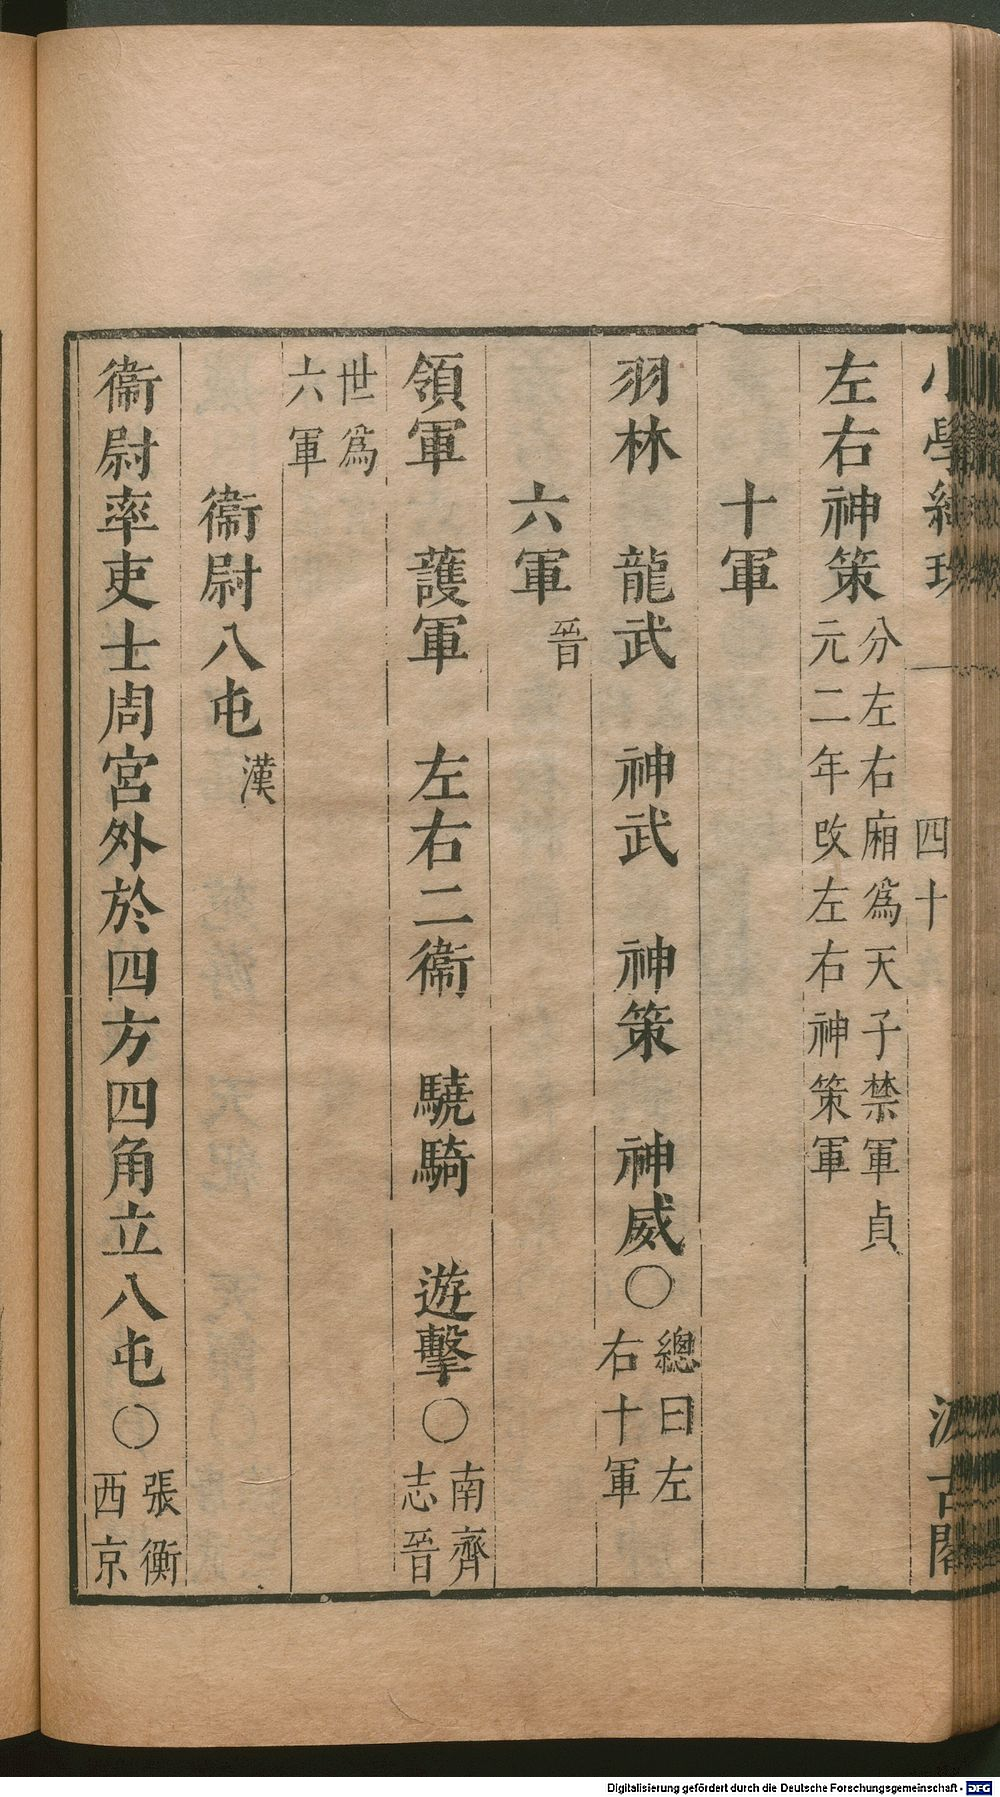 小學紺珠 四十 汲古閣
左右神策分左右廂爲天子禁軍貞
元二年改左右神策軍
十軍
羽林 龍武 神武 神策 神威○總曰左
右十軍
六軍晉
領軍 護軍 左右二衞 驍騎 遊擊○南齊
志晉
世爲
六軍
衞尉八屯漢
衞尉率吏士周宮外於四方四角立八屯○張衡
西京
Digitalisierung gefördert durch die Deutsche Forschungsgemeinschaft - DFG